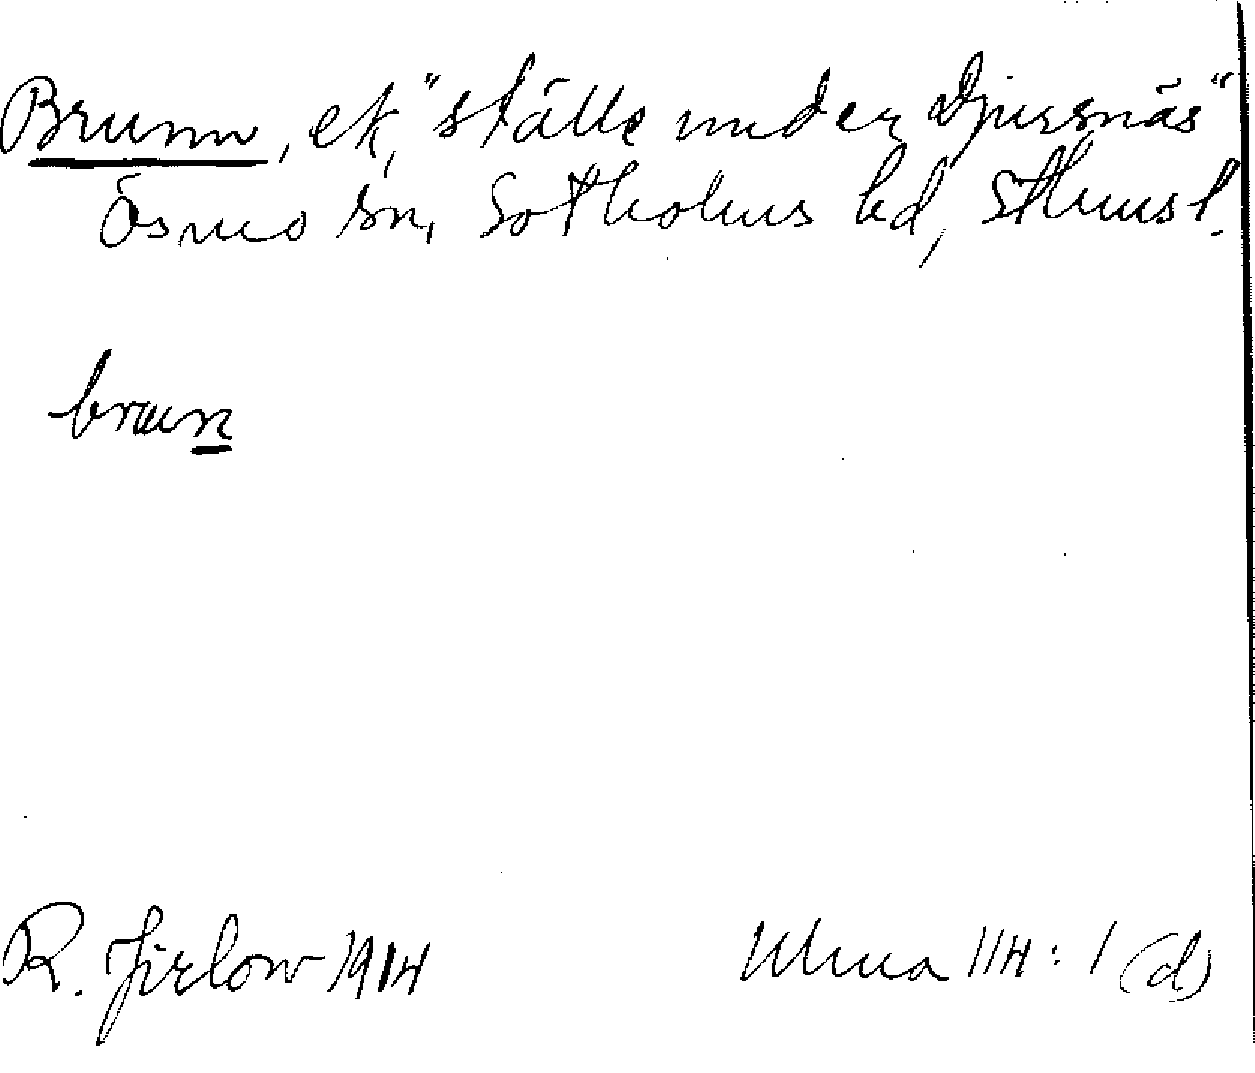 Brunn, ek, "ställe under Djursnäs"
Ösmo sn, Sotholms hd, Sthmsl.
brun
R. Jirlow 1914
Ulma 114:1 (d)